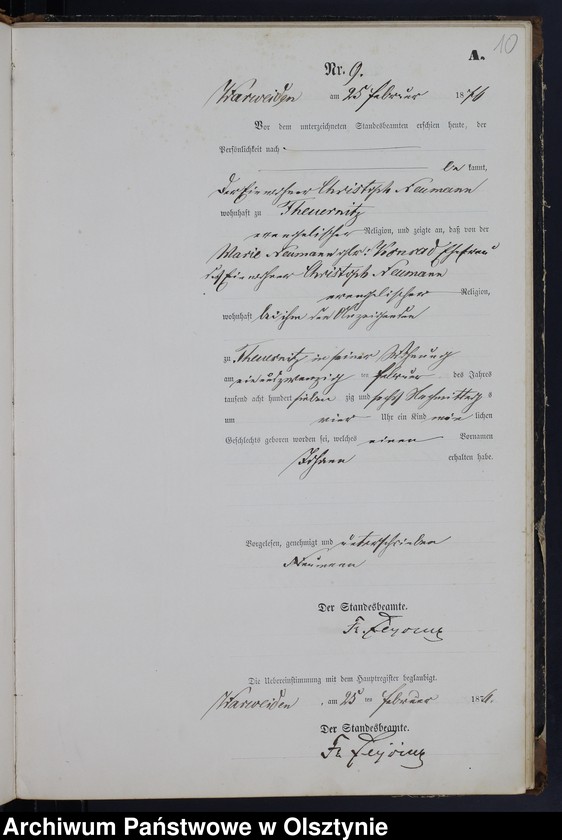 10
A.
Nr. 9.
Warweiden am 25 Februar 1876
Vor dem unterzeichneten Standesbeamten erschien heute, der
Persönlichkeit nach
be kannt,
der Einwohner Christoph Neumann
wohnhaft zu Theuernitz
evangelischer Religion, und zeigte an, daß von der
Marie Neumann geb: Konrad Ehefrau
des Einwohner Christoph Neumann
evangelischer Religion,
wohnhaft bei ihm den Anzeigenden
zu Theuernitz in seiner Wohnung
am einundzwanzig ten Februar des Jahres
tausend acht hundert sieben zig und sechs Nachmittag s
um vier Uhr ein Kind män lichen
Geschlechts geboren worden sei, welches einen Vornamen
Johann erhalten habe.
Vorgelesen, genehmigt und unterschrieben
Neumann
Der Standesbeamte.
Fr.
Die Uebereinstimmung mit dem Hauptregister beglaubigt.
Warweiden, am 25 ten Februar 1876.
Der Standesbeamte.
Fr.
Archiwum Państwowe w Olsztynie